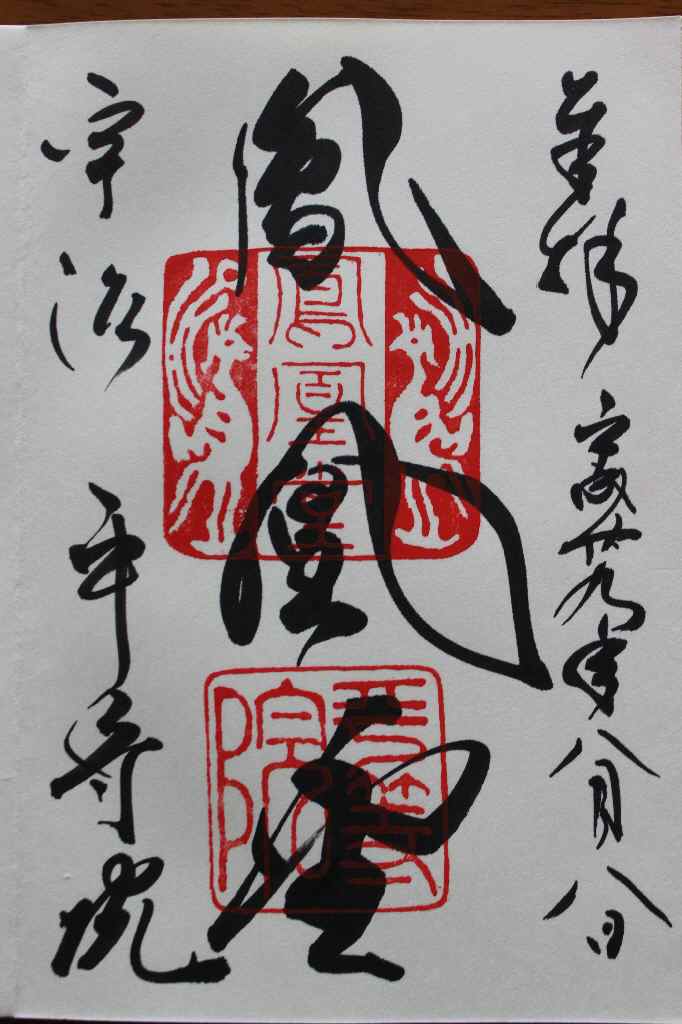 奉拝 平成廿九年八月八日
鳳凰堂
鳳凰堂
平等院
宇治 平等院